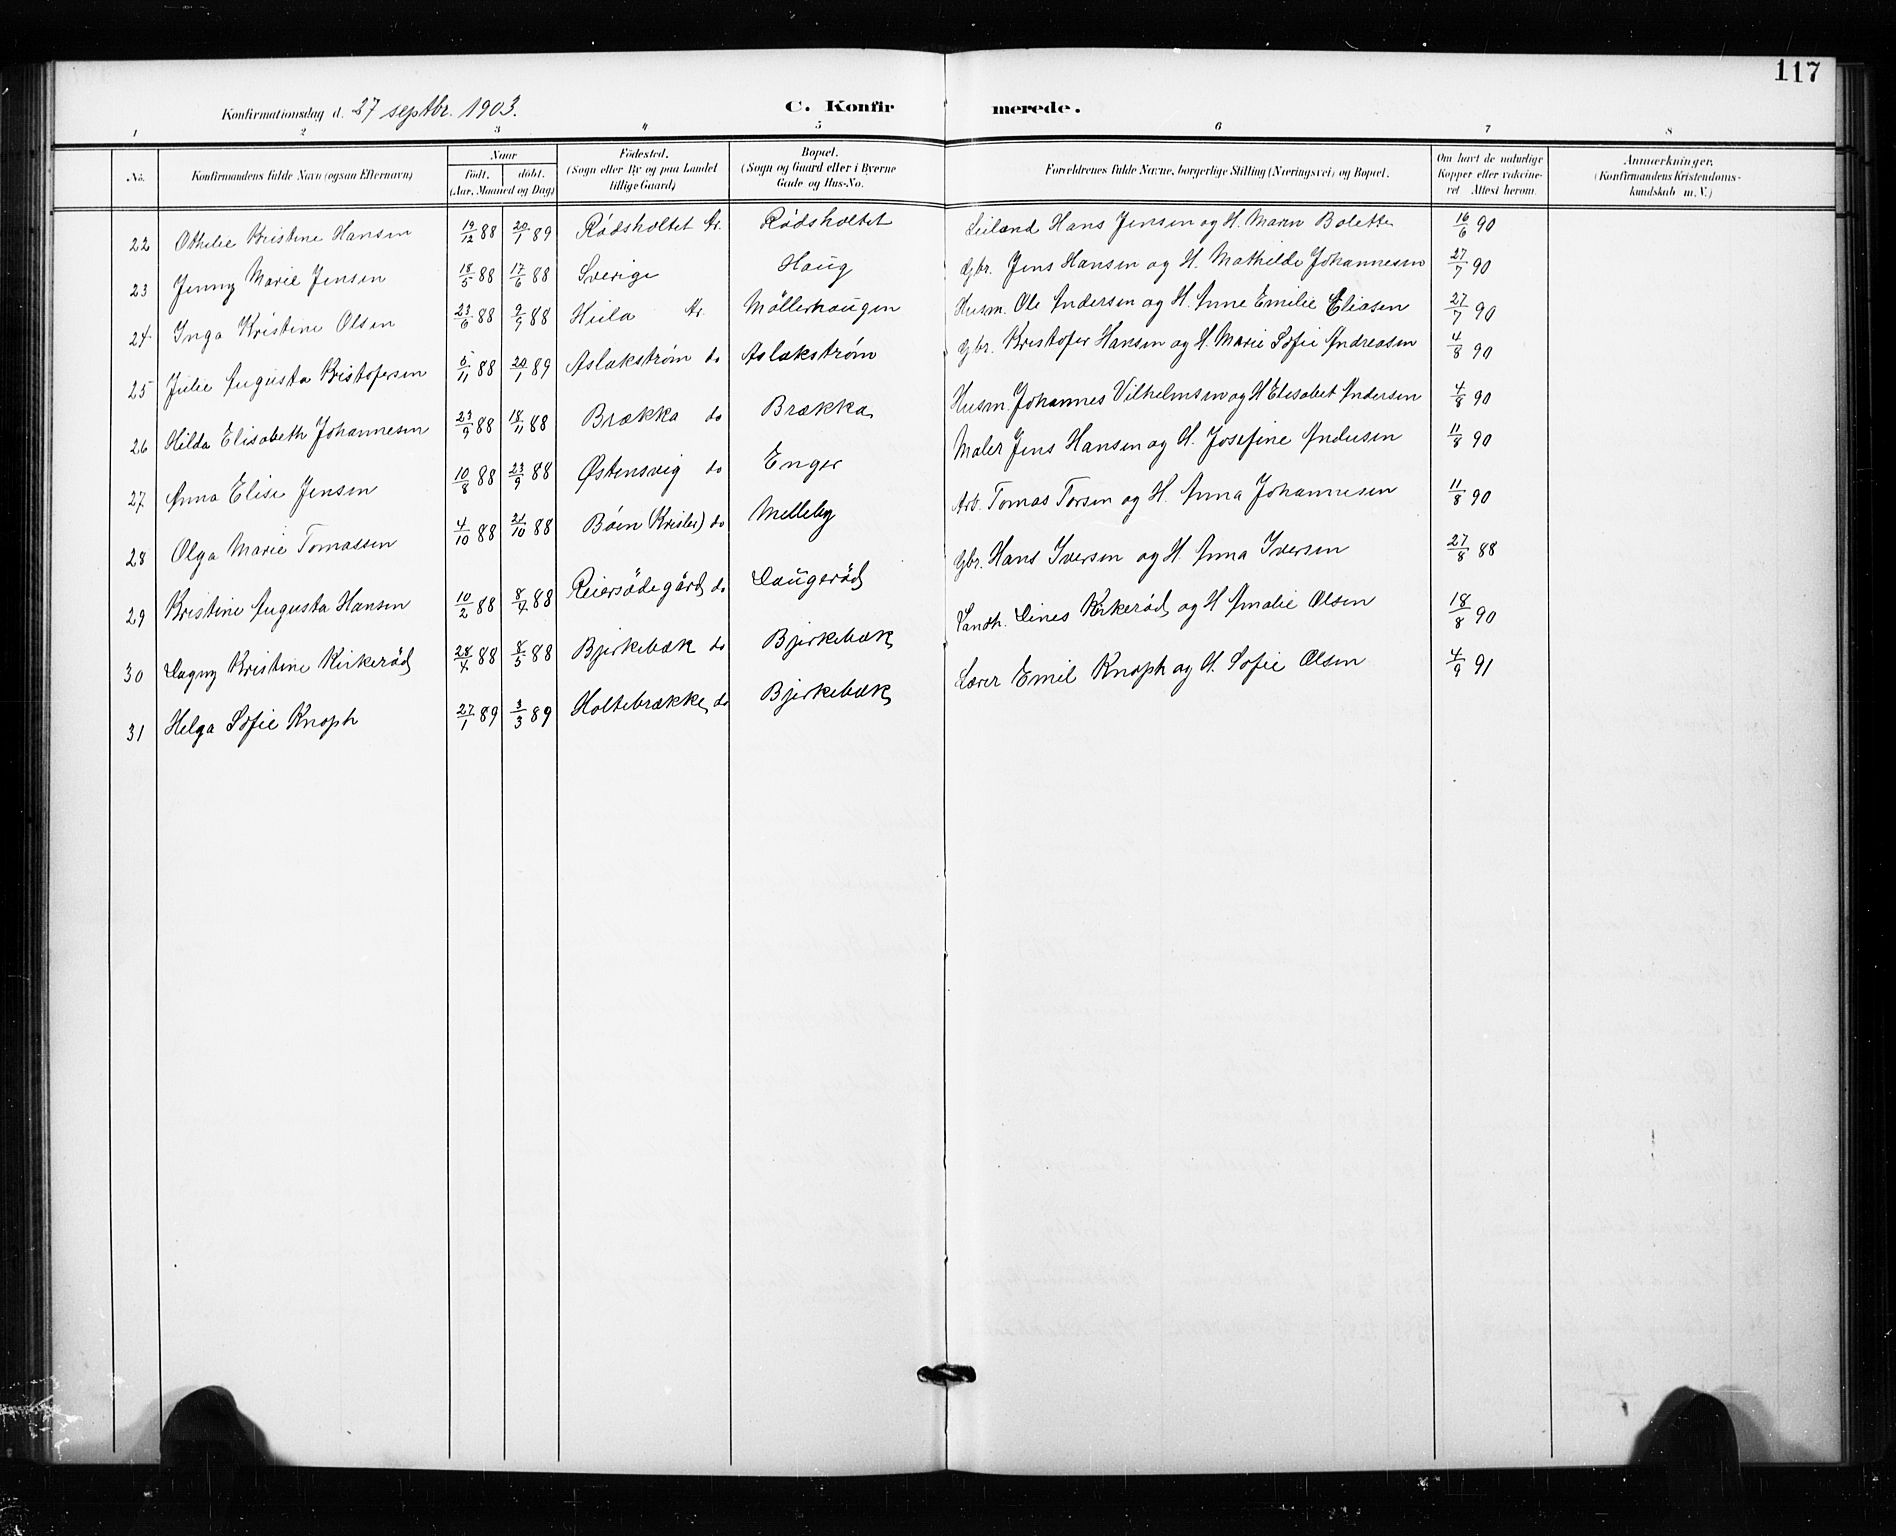 117
Konfirmationsdag d. 27 septbr. 1903. C. Konfir merede.
1 2 3 4 5 6 7 8
No. Konfirmandens fulde Navn (ogsaa Efternavn) Naar Født. døbt. (Aar, Maaned og Dag) Fødested. (Sogn eller By og paa Landet tillige Gaard) Bopæl. (Sogn og Gaard eller i Byerne Gade og Hus-No. Forældrenes fulde Navne, borgerlige Stilling (Næringsvei) og Bopæl. Om havt de naturlige Kopper eller vakcineret Attest herom. Anmærkninger. (Konfirmandens Kristendomskundskab m. V.)
22 Othelie Kristine Hansen 19/12 88 20/1 89 Rødsholtet Rødsholtet Leiland Hans Jensen og H. Maren Bolette 16/6 90
23 Jenny Marie Jensen 18/5 88 17/6 88 Sverige Haug Gbr. Jens Hansen og H. Mathilde Johannesen 27/7 90
24 Inga Kristine Olsen 23/6 88 9/9 88 Hiila Møllerhaugen Husm. Ole Andersen og H. Anne Emilie Eliasen 27/7 90
25 Julie Augusta Kristofersen 5/11 88 20/1 89 Aslakstrøm do Aslakstrøm Gbr. Kristofer Hansen og H. Marie Sofie Andreasen 4/8 90
26 Hilda Elisabeth Johannesen 23/9 88 18/11 88 Brækka do Brækka Husm. Johannes Vilhelmsen og H Elisabet Andersen 4/8 90
27 Anna Elise Jensen 10/8 88 23/9 88 Østensvig do Enger Maler Jens Hansen og H. Josefine Andersen 11/8 90
28 Olga Marie Tomassen 4/10 88 21/10 88 Bøen do Melleby Arb. Tomas Torsen og H. Anna Johannesen 11/8 90
29 Kristine Augusta Hansen 10/2 88 8/4 88 Reiersødegård do Laugerød Gbr. Hans Iversen og H. Anna Iversen 27/8 88
30 Dagny Kristine Kirkerød 28/4 88 8/5 88 Bjerkebæk do Bjerkebæk Landh. Lines Kirkerød og H Amalie Olsen 18/8 90
31 Helga Sofie Knoph 27/1 89 3/3 89 Holtebrække do Bjerkebæk Lærer Emil Knoph og H. Sofie Olsen 4/9 91